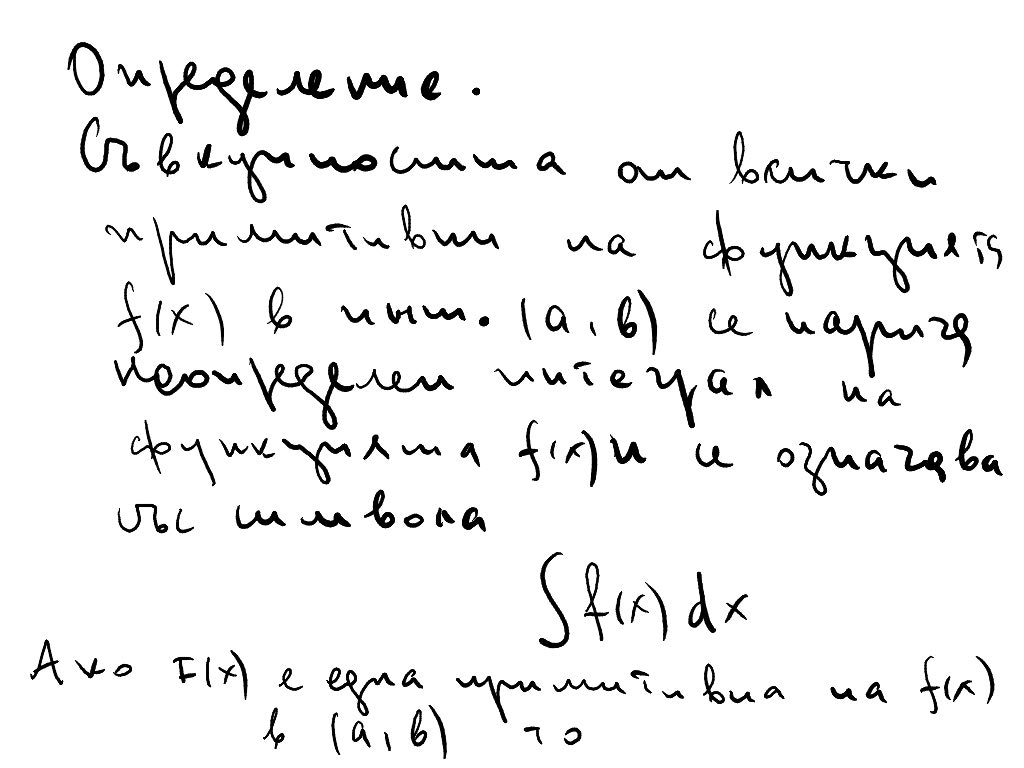 Определение.
Съвкупността от всички
примитивни на функцията
f(x) в инт. (a, b) се нарича
неопределен интеграл на
функцията f(x) и се означава
със символа
∫f(x) dx
Ако F(x) е една примитивна на f(x)
в (a, b) то